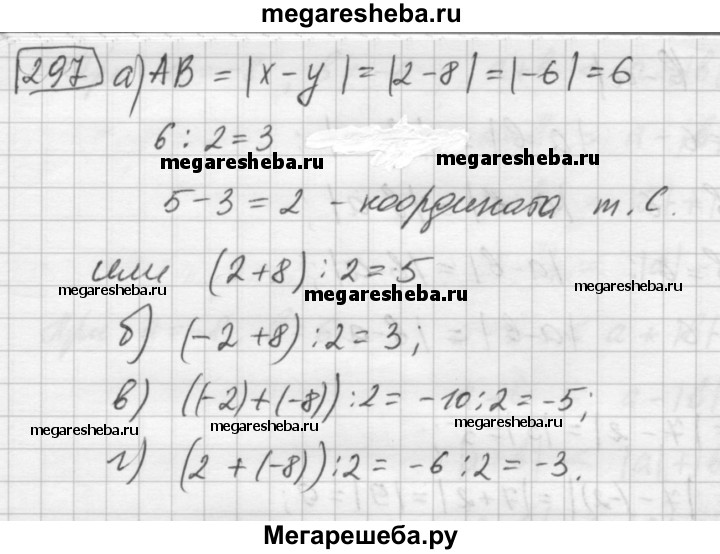 megaresheba.ru
297 а) AB = |x - y| = |2 - 8| = |-6| = 6
6 : 2 = 3
megaresheba.ru megaresheba.ru
5 - 3 = 2 - координата т. C.
или (2 + 8) : 2 = 5
megaresheba.ru megaresheba.ru megaresheba.ru
б) (-2 + 8) : 2 = 3;
в) ((-2) + (-8)) : 2 = -10 : 2 = -5;
megaresheba.ru megaresheba.ru megaresheba.ru
г) (2 + (-8)) : 2 = -6 : 2 = -3.
Мегарешеба.ру